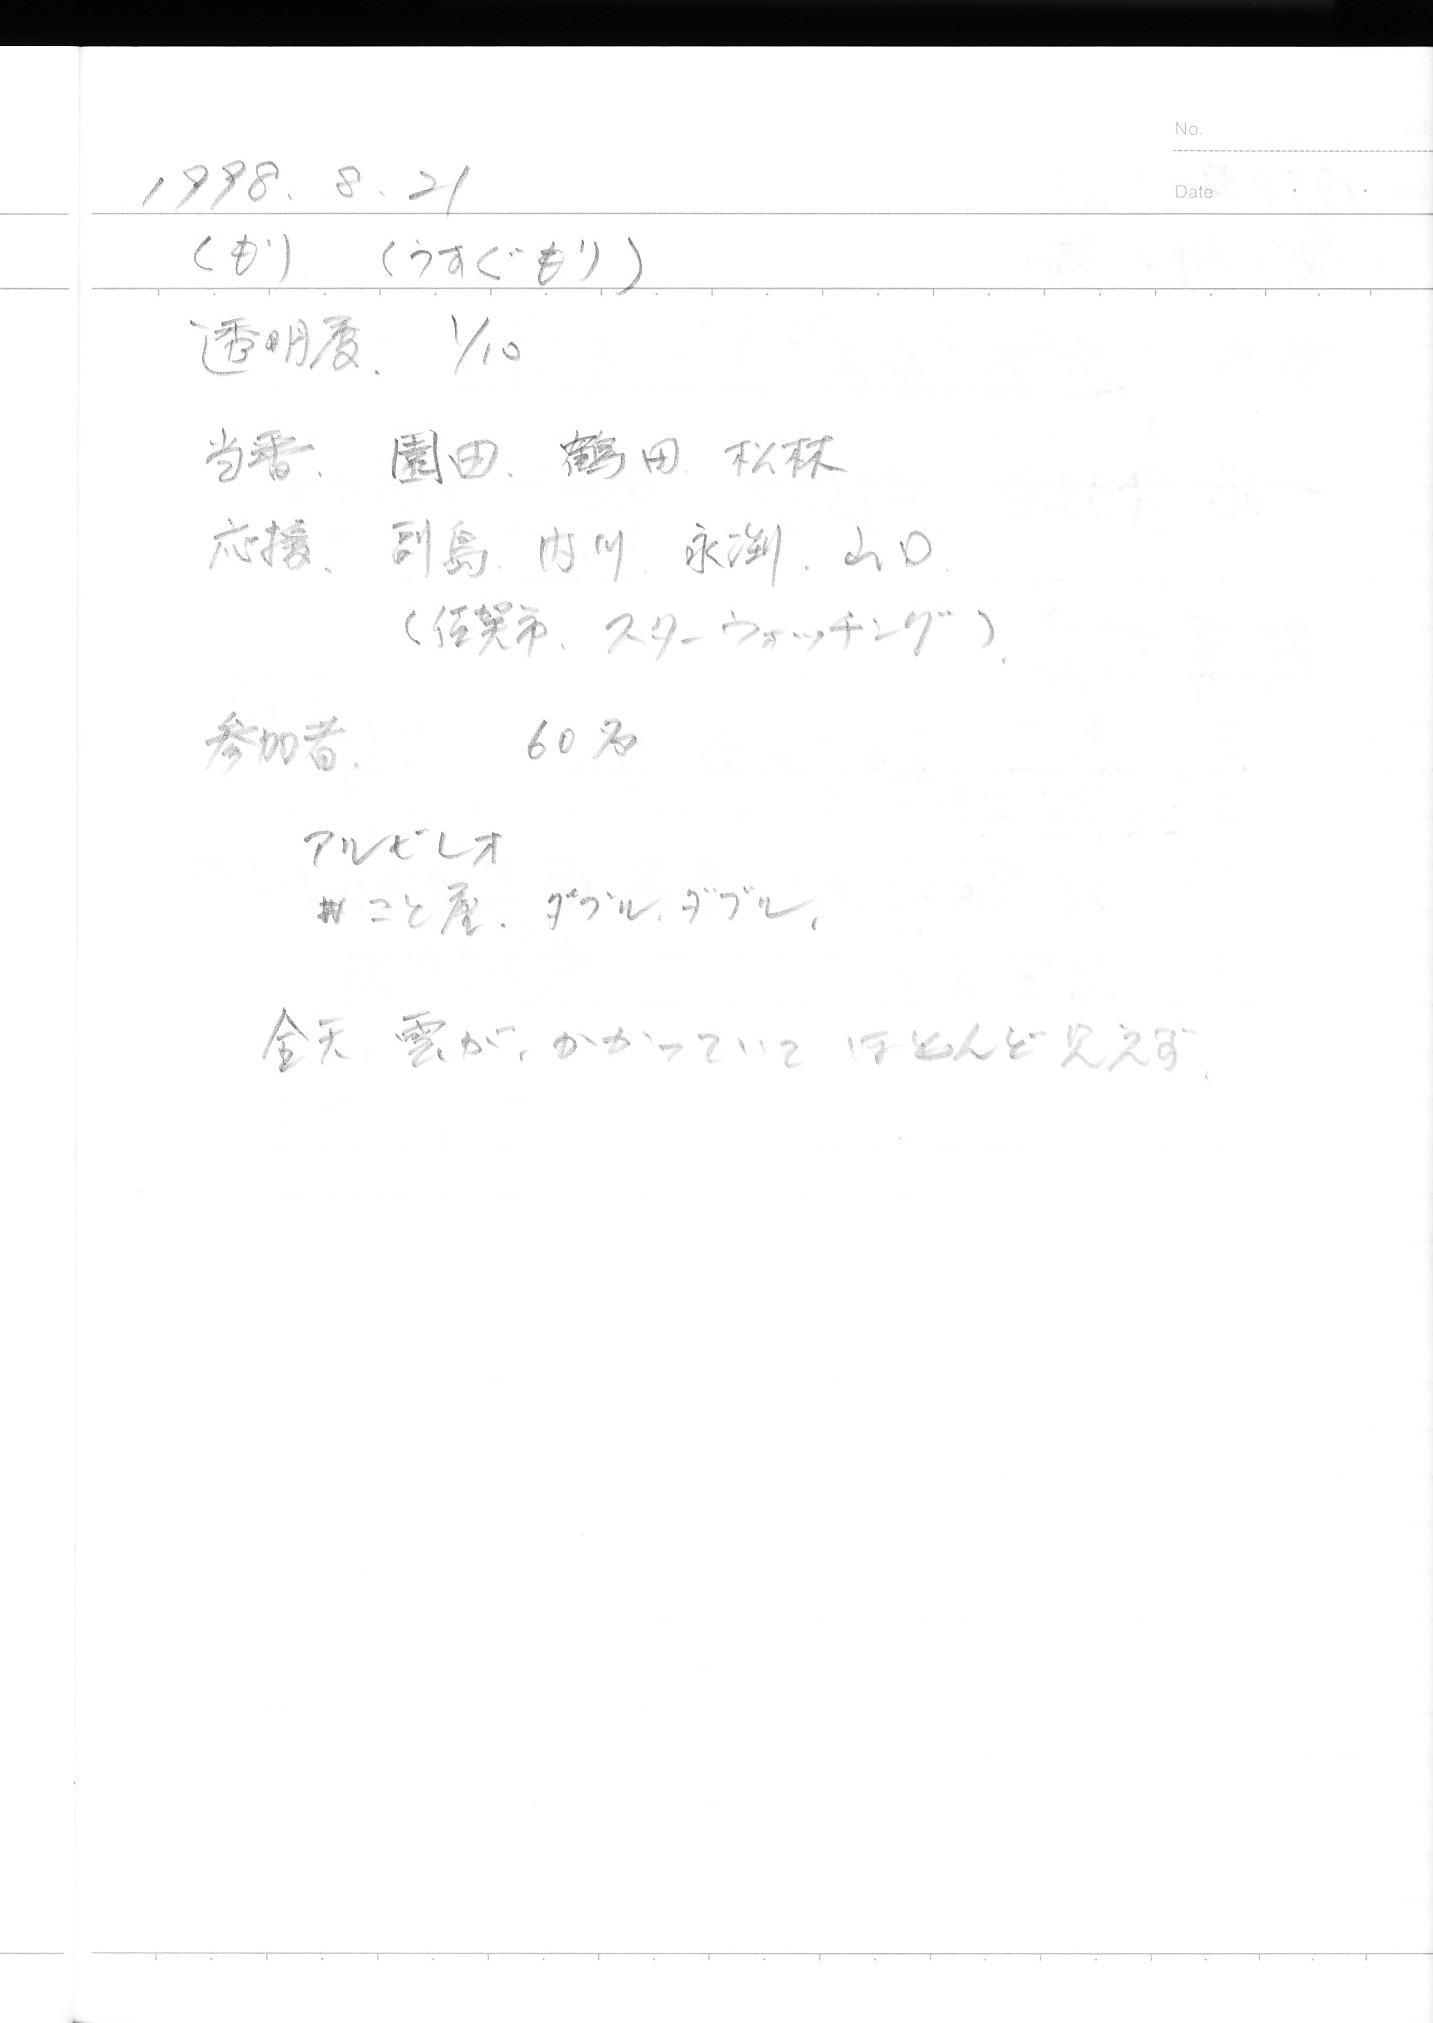 No.
Date
1998. 8. 21
くもり (うすぐもり)
透明度. 1/10
当番. 園田. 鶴田. 松林
応援. 副島. 内川. 永渕. 山口.
(佐賀市. スターウォッチング).
参加者. 60名
アルビレオ
こと座. ダブル. ダブル.
全天 雲が, かかっていて ほとんど見えず.